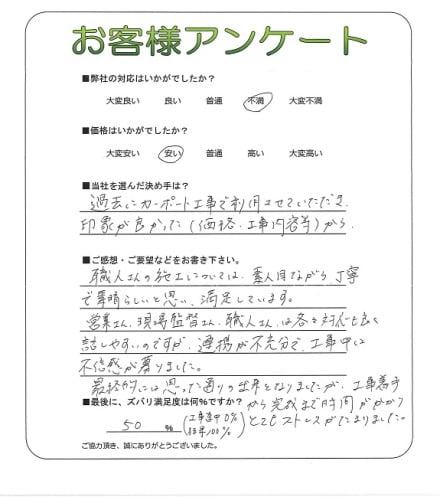 お客様アンケート
■弊社の対応はいかがでしたか?
大変良い 良い 普通 不満 大変不満
■価格はいかがでしたか?
大変安い 安い 普通 高い 大変高い
■当社を選んだ決め手は?
過去にカーポート工事で利用させていただき
印象が良かった(価格・工事内容等)から。
■ご感想・ご要望などをお書き下さい。
職人さんの施工については、素人目ながら、丁寧
で素晴らしいと思い、満足しています。
営業さん、現場監督さん、職人さん、は各々対応も良く
話しやすいのですが、連携が不充分で、工事中に
不信感が募りました。
最終的には思った通りの出来となりましたが、工事着手
から完成まで時間がかかり
とてもストレスがたまりました。
■最後に、ズバリ満足度は何%ですか?
50 % (工事途中0% 結果100%)
ご協力頂き、誠にありがとうございました。